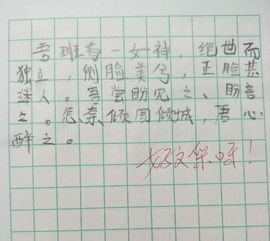 吾班有一女神，绝世而
独立，侧脸美兮，正脸甚
迷人。吾尝盼见之、盼言
之。怎奈倾国倾城，吾心
醉之。
好文采呀！